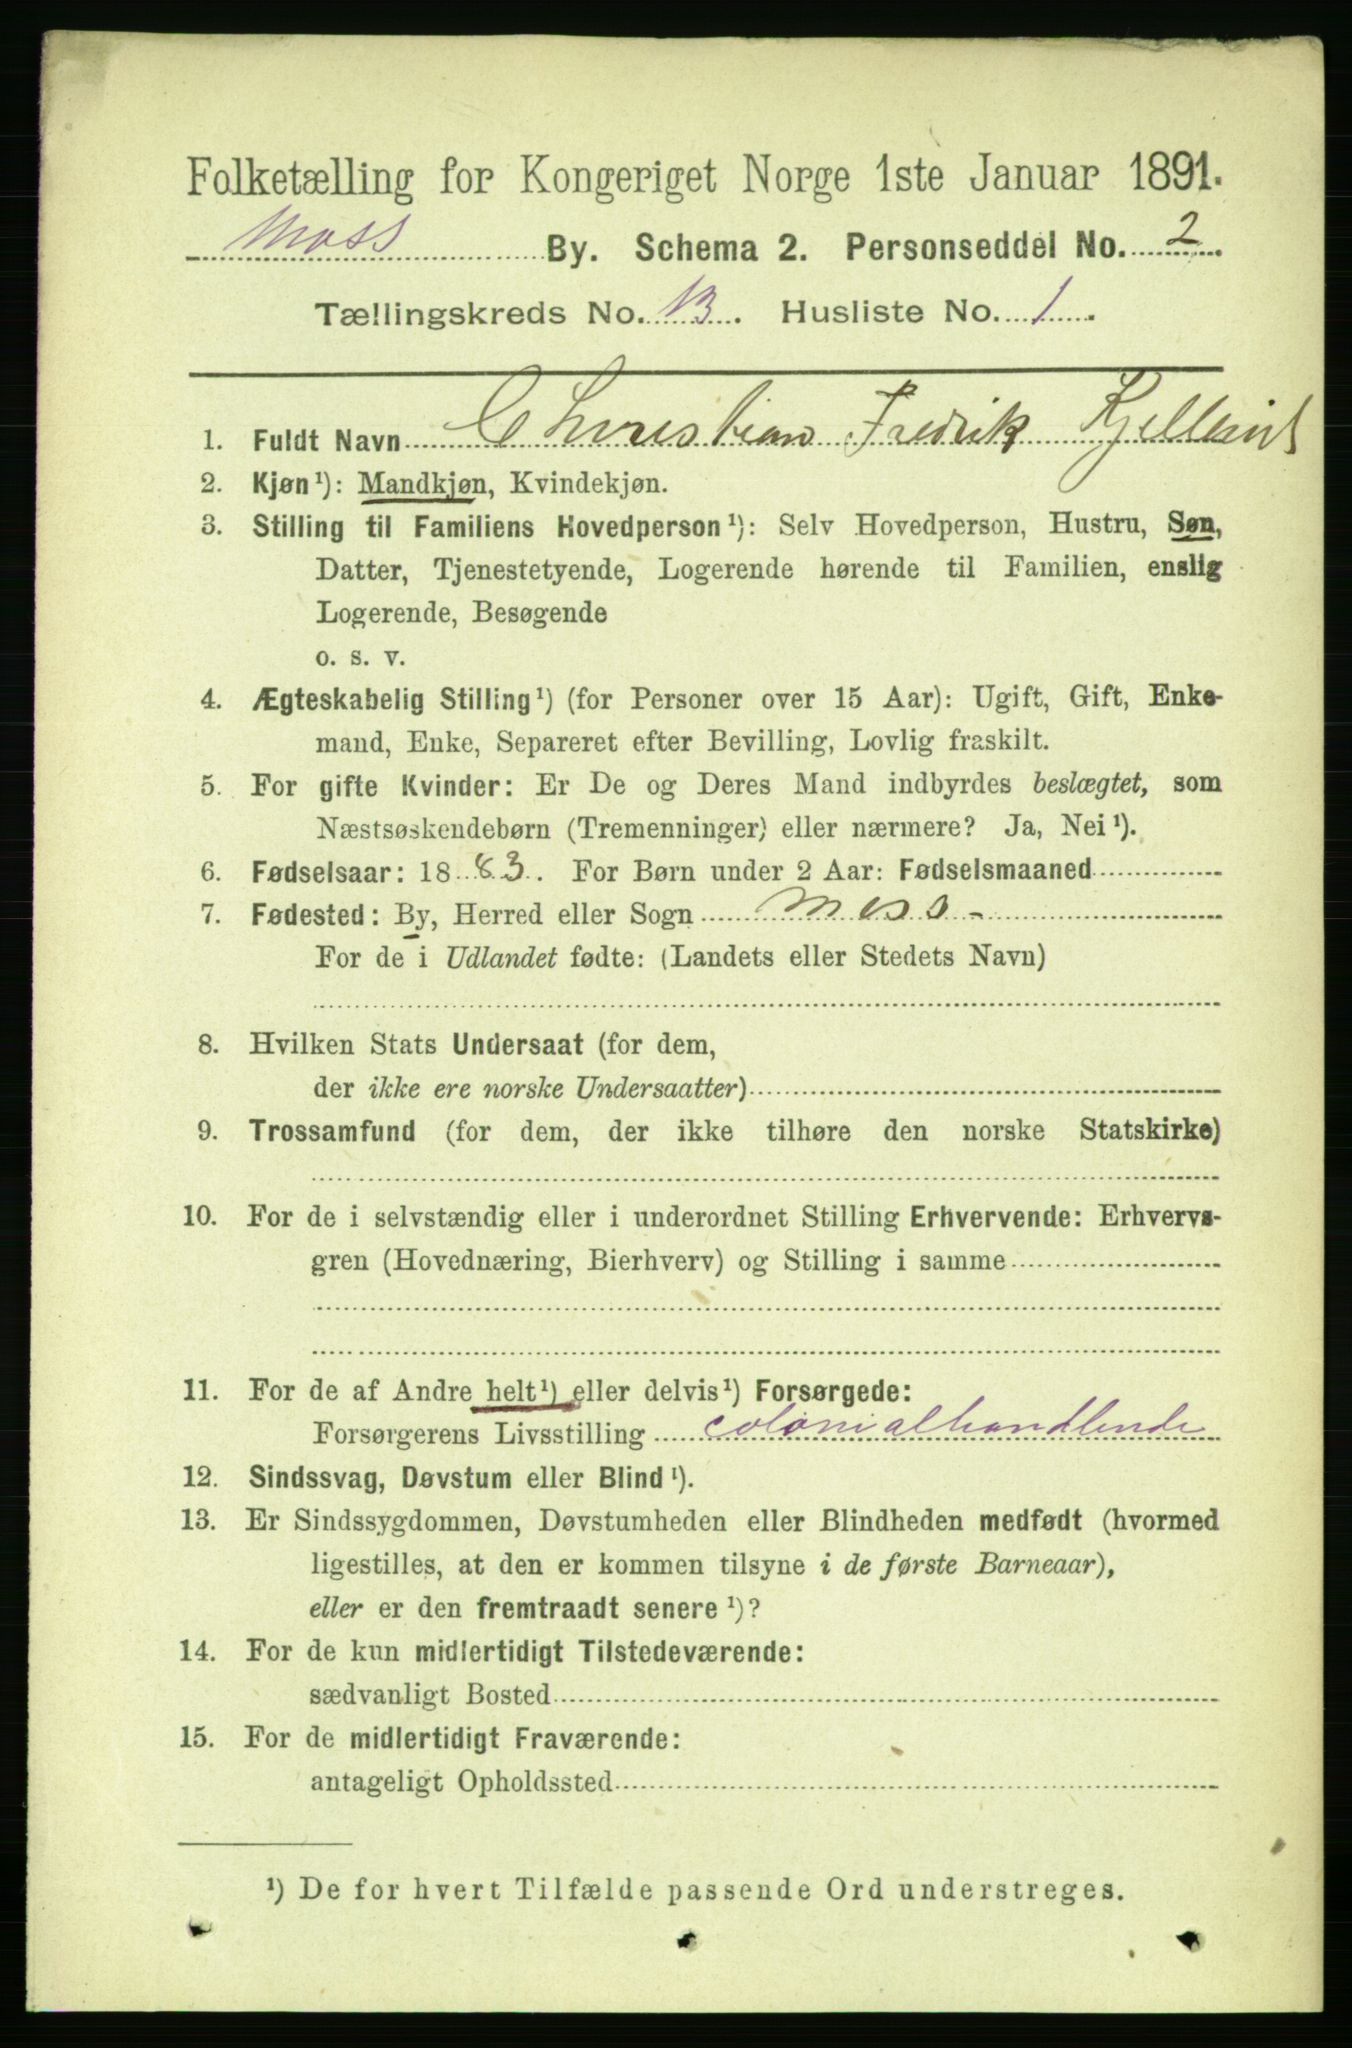 Folketælling for Kongeriget Norge 1ste Januar 1891.
Moss By. Schema 2. Personseddel No. 2
Tællingskreds No. 13. Husliste No. 1.
1. Fuldt Navn Christian Fredrik
2. Kjøn¹): Mandkjøn, Kvindekjøn.
3. Stilling til Familiens Hovedperson¹): Selv Hovedperson, Hustru, Søn,
Datter, Tjenestetyende, Logerende hørende til Familien, enslig
Logerende, Besøgende
o. s. v.
4. Ægteskabelig Stilling¹) (for Personer over 15 Aar): Ugift, Gift, Enke-
mand, Enke, Separeret efter Bevilling, Lovlig fraskilt.
5. For gifte Kvinder: Er De og Deres Mand indbyrdes beslægtet, som
Næstsøskendebørn (Tremenninger) eller nærmere? Ja, Nei¹).
6. Fødselsaar: 1883. For Børn under 2 Aar: Fødselsmaaned
7. Fødested: By, Herred eller Sogn Moss -
For de i Udlandet fødte: (Landets eller Stedets Navn)
8. Hvilken Stats Undersaat (for dem,
der ikke ere norske Undersaatter)
9. Trossamfund (for dem, der ikke tilhøre den norske Statskirke)
10. For de i selvstændig eller i underordnet Stilling Erhvervende: Erhvervs-
gren (Hovednæring, Bierhverv) og Stilling i samme
11. For de af Andre helt¹) eller delvis¹) Forsørgede:
Forsørgerens Livsstilling colonialhandlende
12. Sindssvag, Døvstum eller Blind¹).
13. Er Sindssygdommen, Døvstumheden eller Blindheden medfødt (hvormed
ligestilles, at den er kommen tilsyne i de første Barneaar),
eller er den fremtraadt senere¹)?
14. For de kun midlertidigt Tilstedeværende:
sædvanligt Bosted
15. For de midlertidigt Fraværende:
antageligt Opholdssted
¹) De for hvert Tilfælde passende Ord understreges.